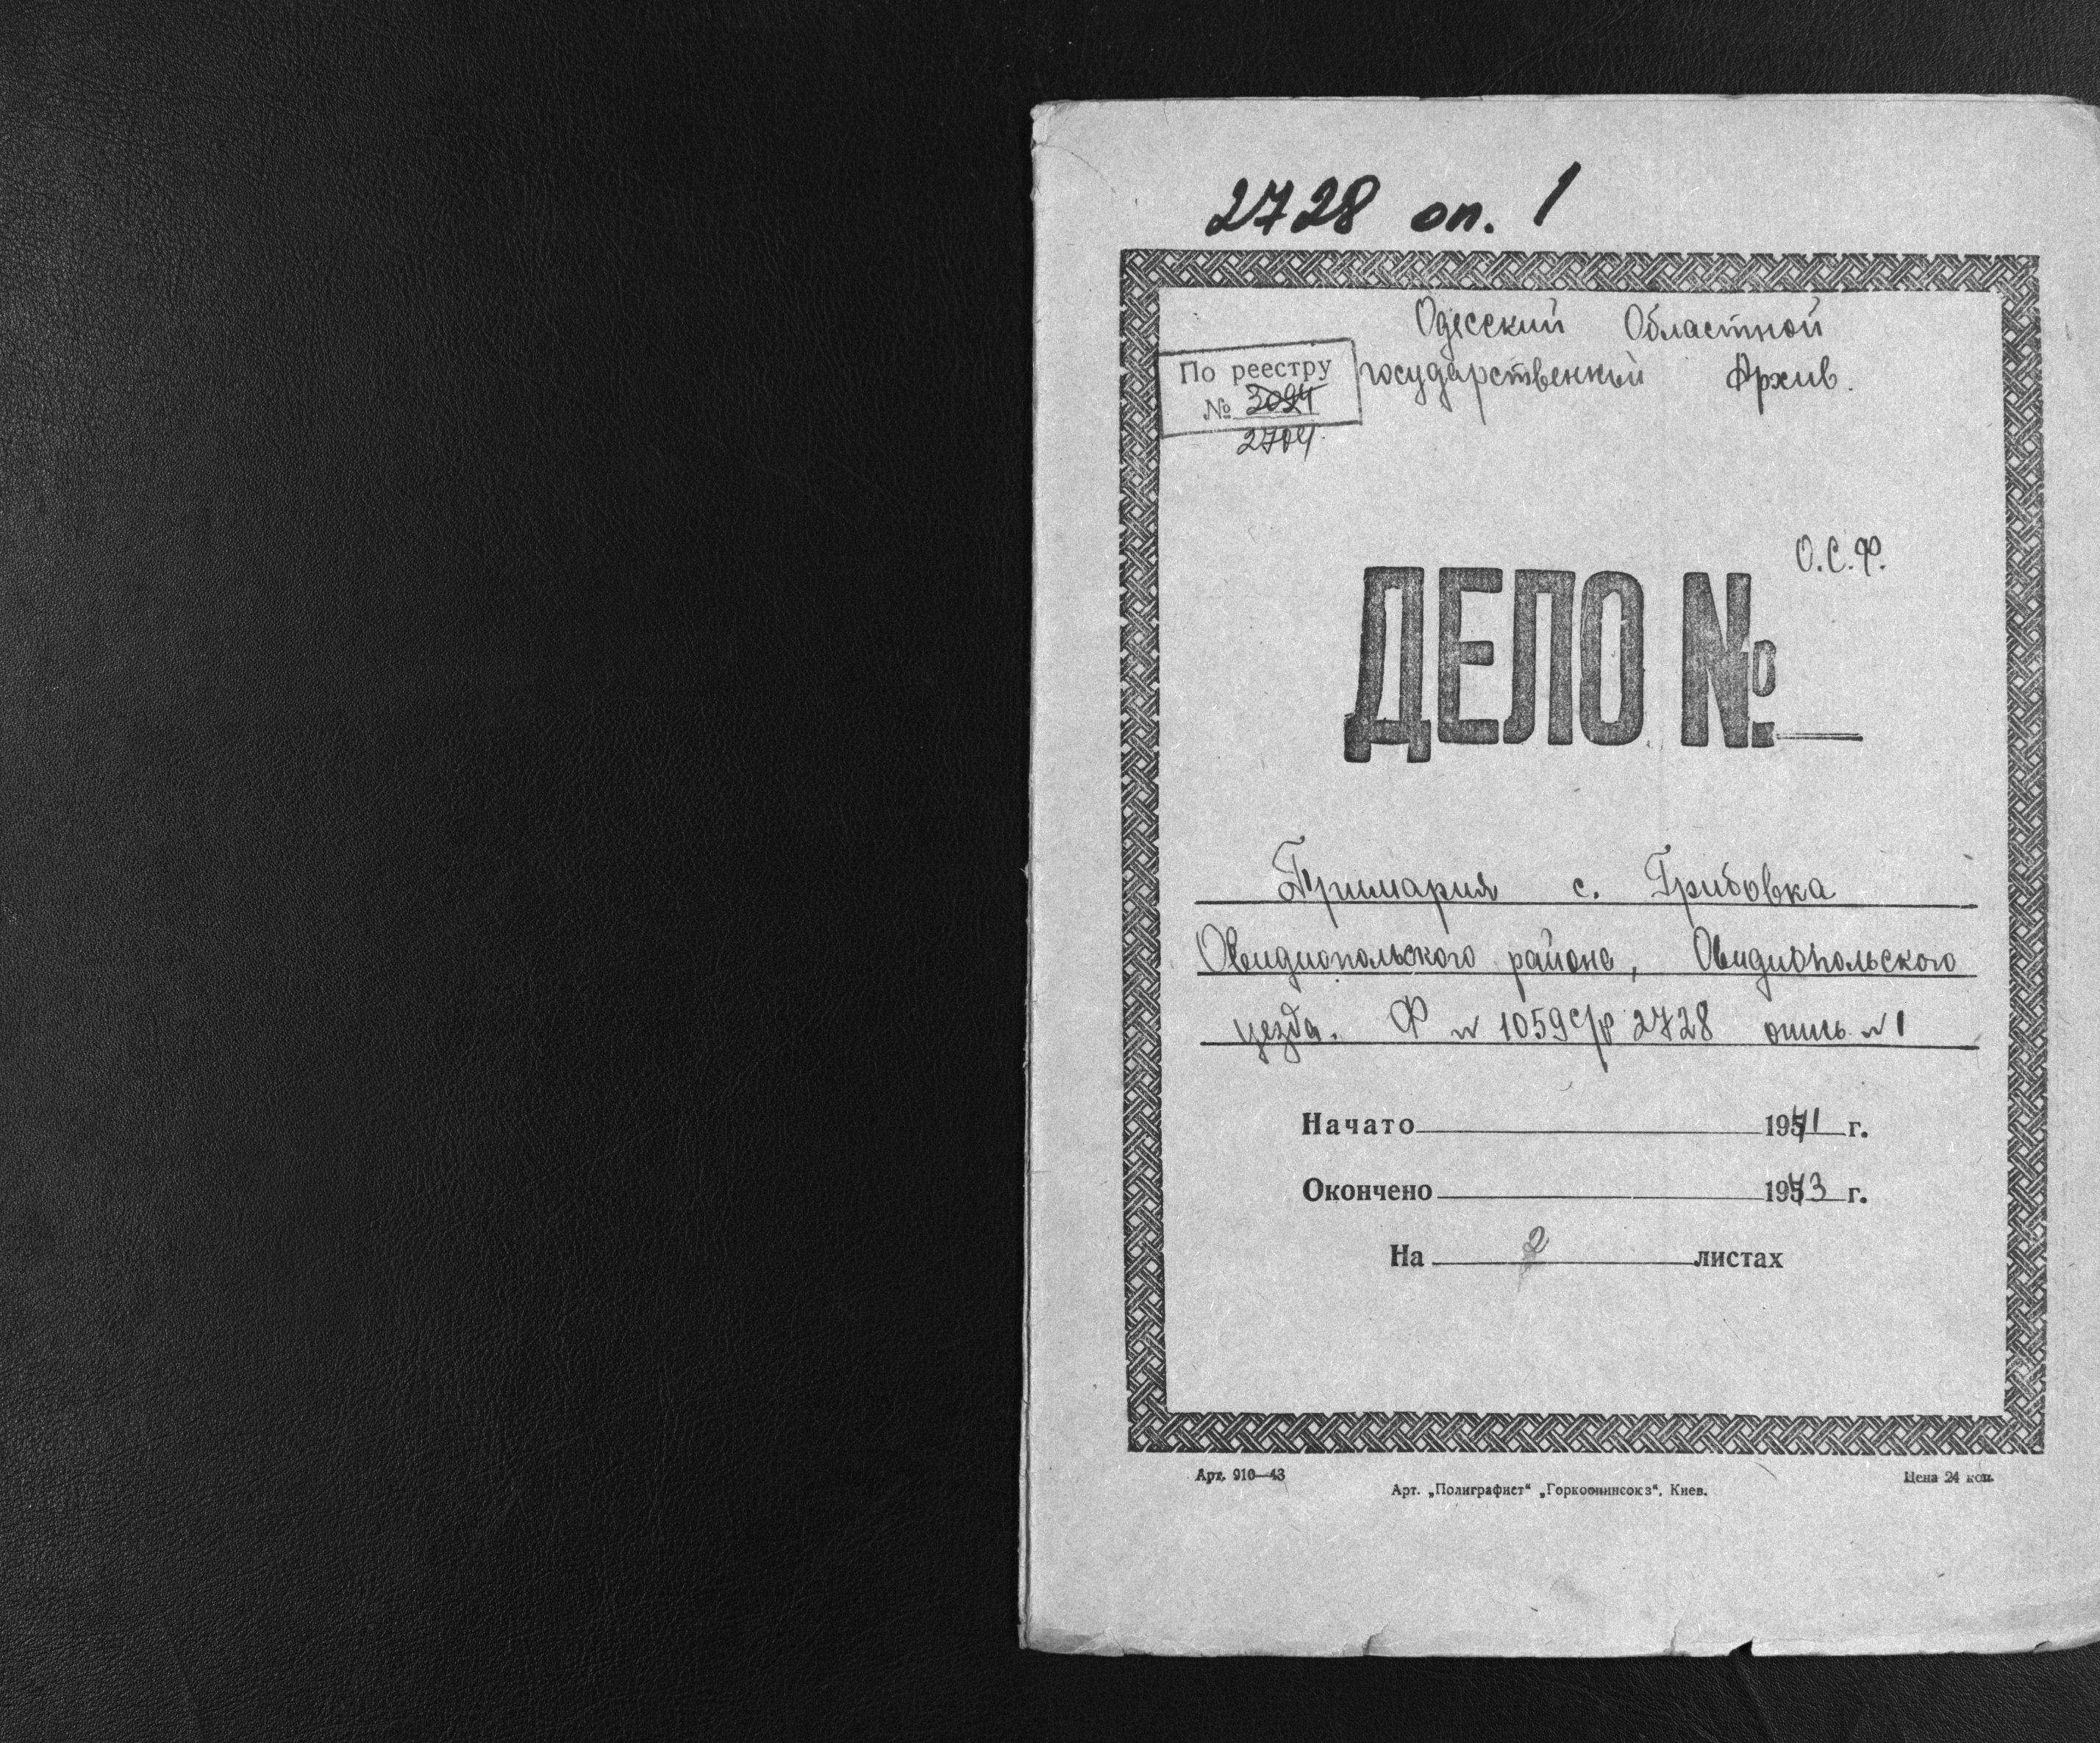 2728 оп. 1
Одесский Областной
Государственный Архив.
По реестру
№ 3094
2704
О.С.Ф.
ДЕЛО №
Примария с. Грибовка
Овидиопольского района, Овидиопольского
уезда. Ф № 1059с/р 2728 опись № 1
Начато 1941 г.
Окончено 1943 г.
На 2 листах
Арт. 910—43
Цена 24 коп.
Арт. „Полиграфист“ , Киев.